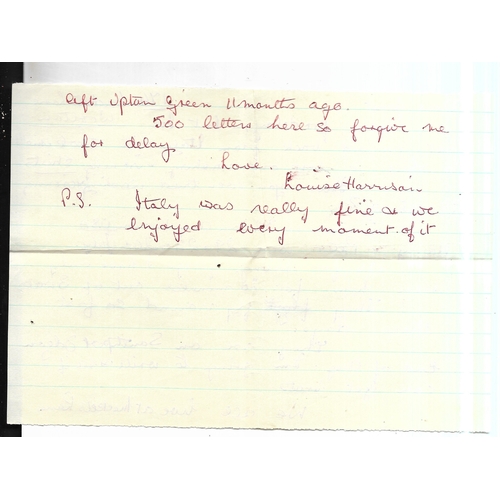 left Upton Green 11 months ago.
500 letters here so forgive me
for delay
Love.
Louise Harrison
P.S. Italy was really fine & we
enjoyed every moment of it